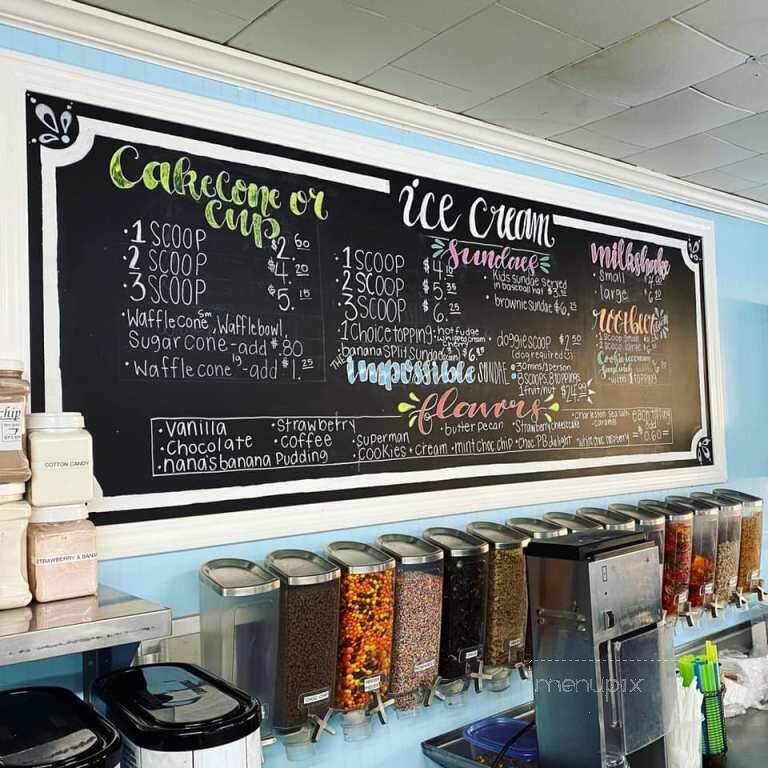 ice cream
Cakecone or
cup
·1 SCOOP $2.60
·2 SCOOP $4.20
·3 SCOOP $5.15
·Wafflecone sm, Wafflebowl,
Sugar cone-add $.80
·Wafflecone lg-add $1.25
Sundaes
·1 SCOOP
2 SCOOP
3 SCOOP $6.25
1 Choice topping · hot fudge
whipped cream
cherry
banana split sundae
·Kids sundae served
in baseball hat
·brownie sundae $6.25
·doggie scoop $2.50
(dog required)
THE impossible SUNDAE
·30 mns/1 person
8 scoops, 8 toppings
1 fruit/nut $24.99
milkshake
·Small
·large
with 1 topping
flavors
·vanilla
·Chocolate
·nana's banana Pudding
·strawberry
·coffee
·Superman
·cookies + cream
·butter pecan
·mint choc chip
·Strawberry cheesecake
·Choc PB delight
·charleston sea salt
caramel
·white choc raspberry
each topping
add
$0.60
chip
COTTON CANDY
STRAWBERRY & BANA
menupix